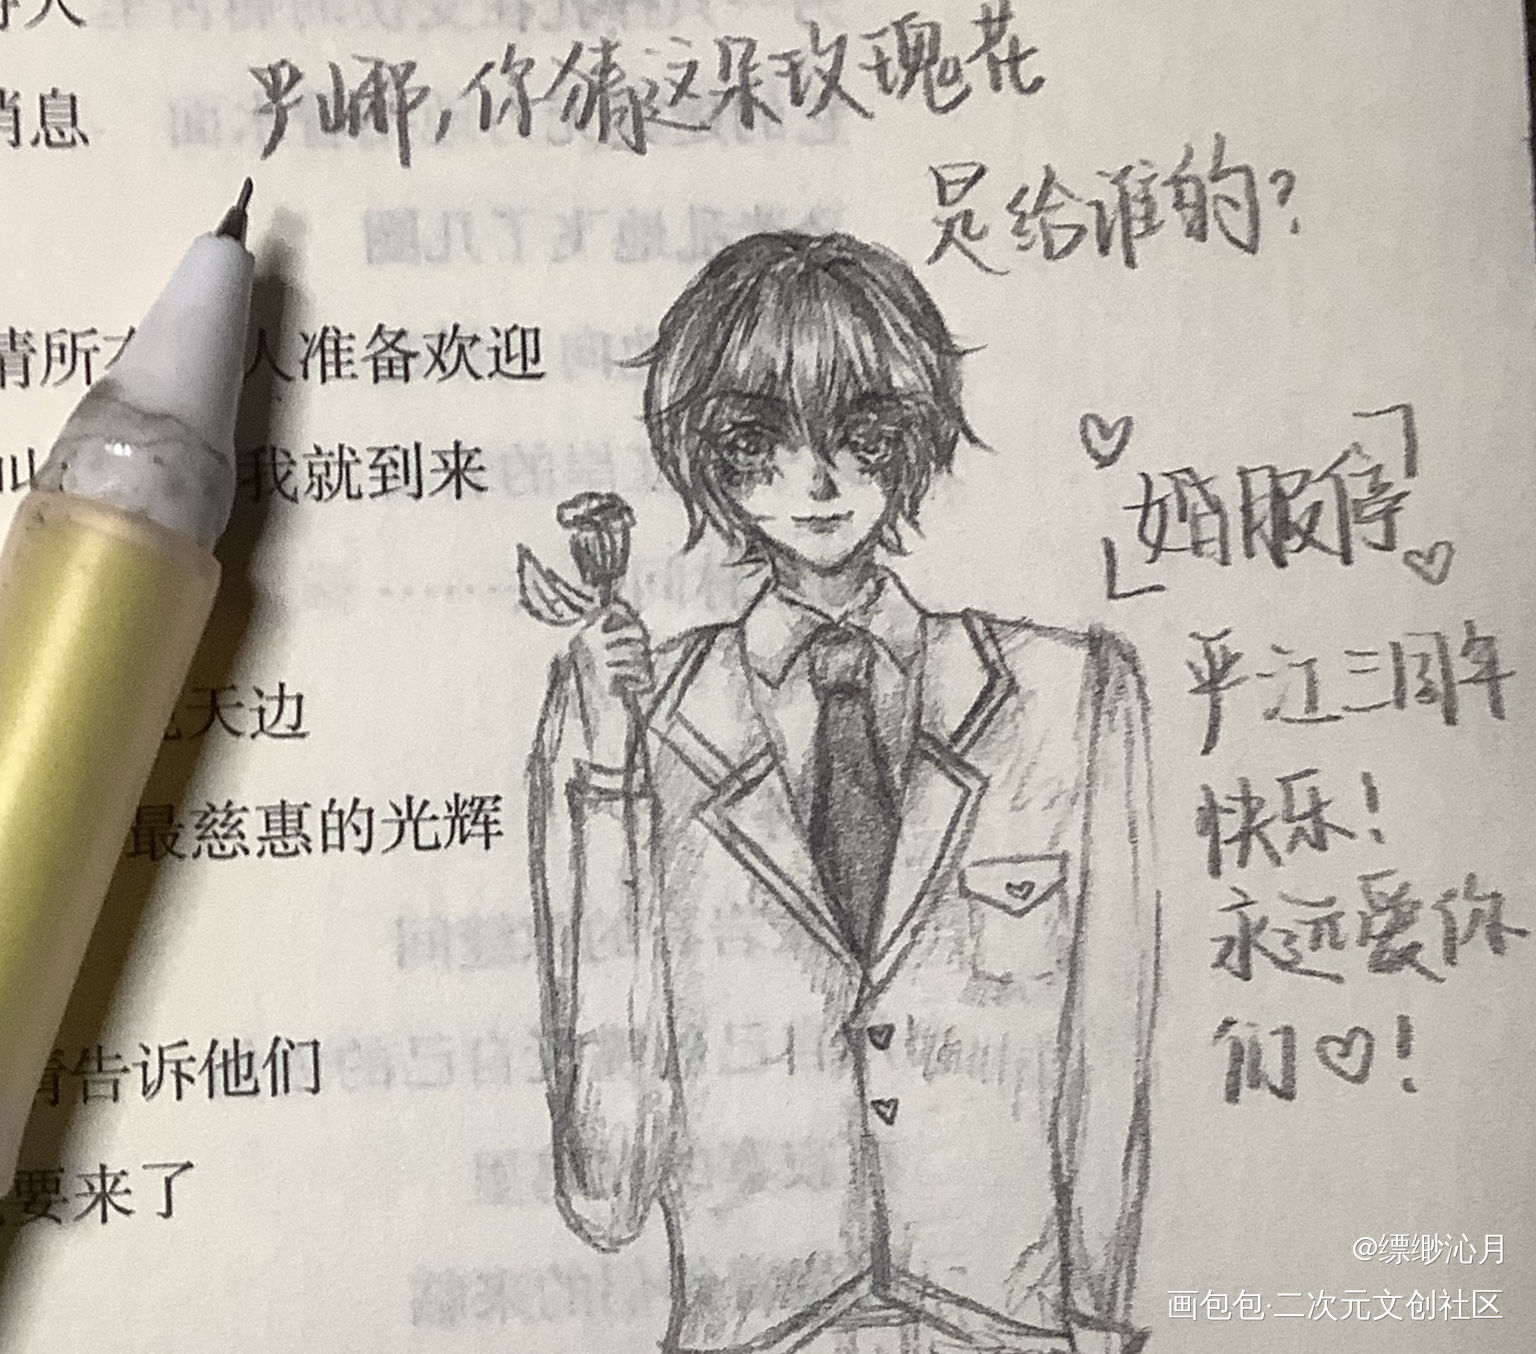 罗哪,你猜这朵玫瑰花
是给谁的?
消息
请所
人准备欢迎
我就到来
天边
最慈惠的光辉
告诉他们
要来了
「婚服停」
平江三周年
快乐!
永远爱你
们♡!
@缥缈沁月
画包包·二次元文创社区